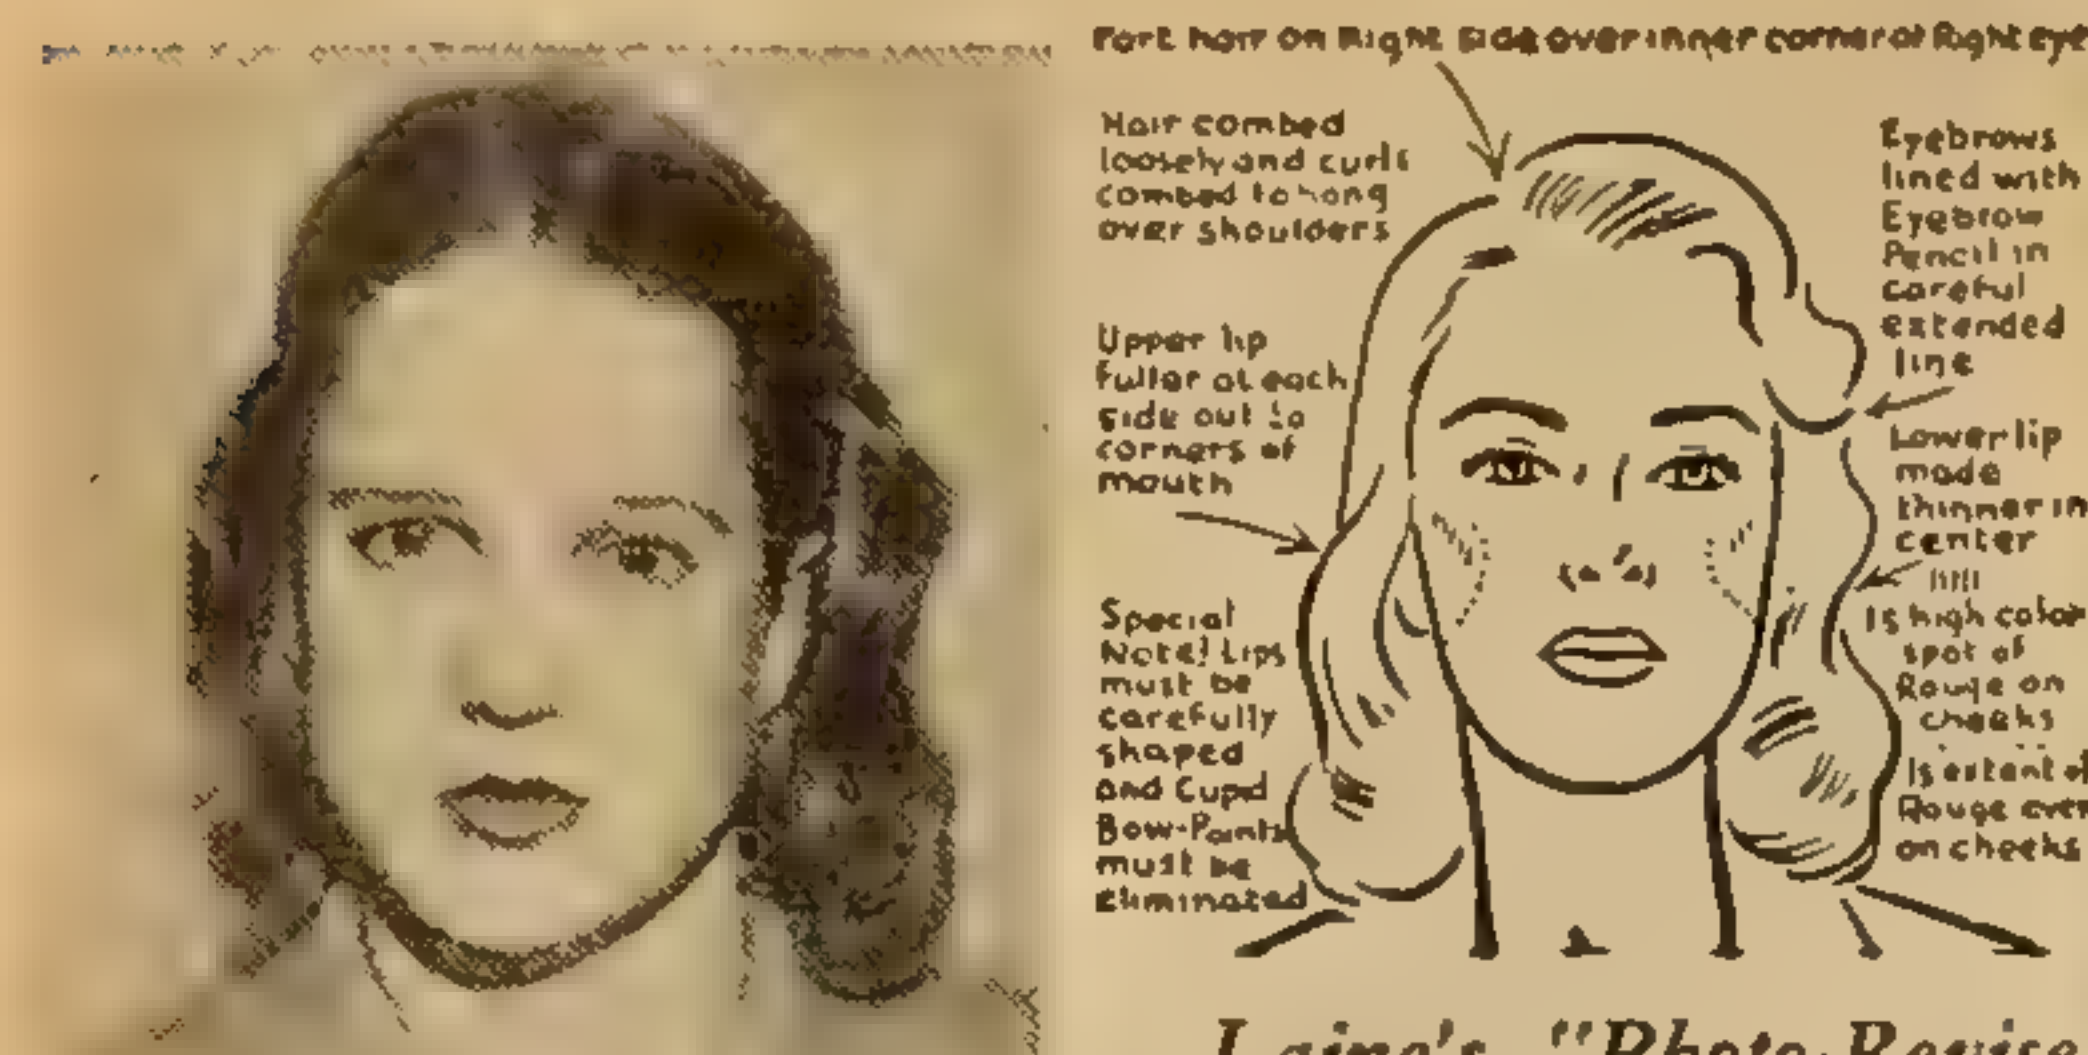 Part hair on Right side over inner corner of Right eye
Hair combed
loosely and curls
combed to hang
over shoulders
Upper lip
fuller at each
side out to
corners of
mouth
Special
Note! Lips
must be
carefully
shaped
and Cupid
Bow-Points
must be
eliminated
Eyebrows
lined with
Eyebrow
Pencil in
careful
extended
line
Lower lip
made
thinner in
center
Is high color
spot of
Rouge on
cheeks
Is extent of
Rouge over
on cheeks
"Photo-Revise